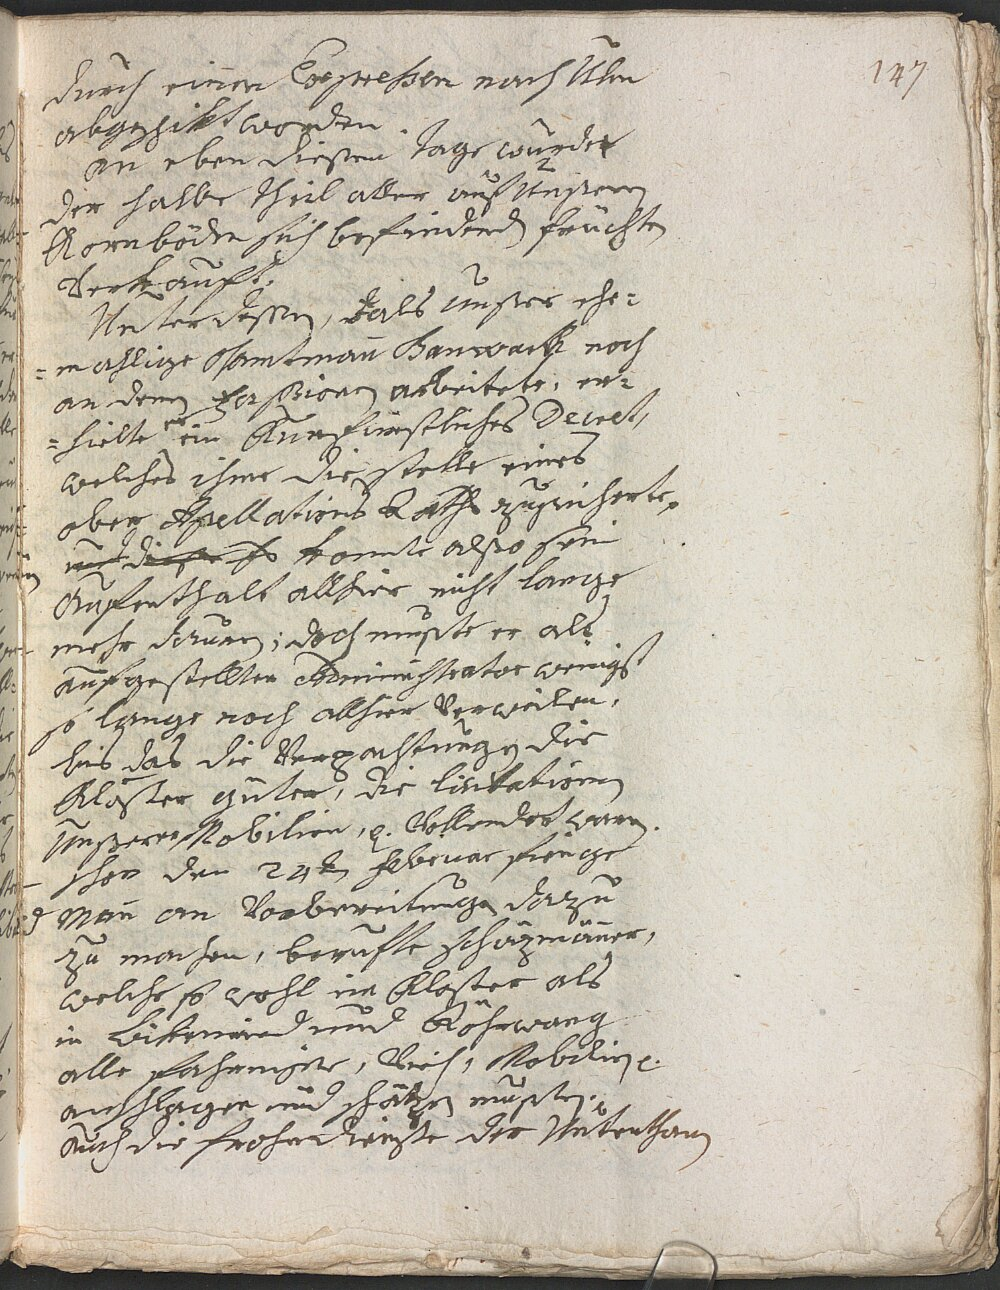 147
durch einen Expreßen nach Ulm
abgeschikt worden.
an eben diesem Tage wurde
der halbe Theil aller auf Unseren
Kornböden sich befindend früchten
Verkauft.
Unterdessen, als Unser ehe=
=mahlige Oberamtmañ Banwarth noch
an denen Fassionen arbeitete, er=
=hielte er ein Kurfürstliches Decret,
welches ihme die Stelle eines
ober Apellations Raths zusicherte,
und diese es konnte also sein
Aufenthalt allhier nicht lange
mehr dauren, doch mußte er als
aufgestellter Administrator wenigst
so lange noch allhier Verweilen,
bis das die Verpachtungen die
Kloster güter, die licitationen
Unserer Mobilien, c. Vollendet waren.
schon den 24ten Februar fienge
Mañ an Vorbereitungen dazu
zu machen, berufte schäzmäñer,
welche so wohl im Kloster als
in und Röhrwang
alle fahrnisse, Vieh, Mobilien c.
aufschlagen und schätzen mußten.
Auch die frohndienste der Unterthanen